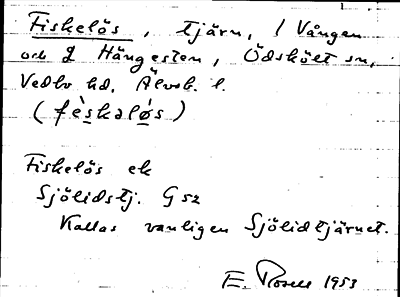 Fiskelös, tjärn, 1 Vången
och 2 Hängesten, Ödskölt sn,
Vedbo hd, Älvsb. l.
(fèskaló̱s)
Fiskelös ek
Sjölidstj. G52
Kallas vanligen Sjölidtjärnet.
E. Rosell 1953